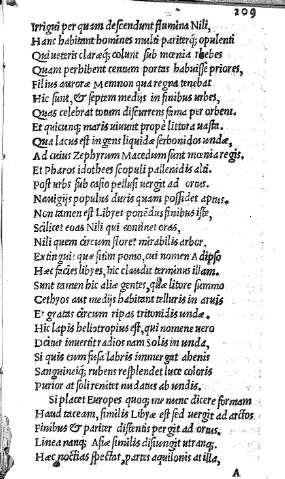 209
Irrigui per quam descendunt flumina Nili,
Hanc habitant homines multi pariterq; opulenti
Qui veteris claræq; colunt sub mœnia thebes
Quam perhibent centum portas habuisse priores,
Filius auroræ Memnon qua regna tenebat
Hic sunt, & septem medijs in finibus urbes,
Quas celebrat totum discurrens fama per orbem.
Et quicunq; maris vivunt prope littora vasta.
Qua lacus est ingens liquidæ serbonidos undæ,
Ad cuius Zephyrum Macedum sunt mœnia regis.
Et Pharos idothees scopuli pallenidis alti.
Post urbs sub casio pelusi vergit ad ortus.
Navigijs populus duris quam possidet aptus.
Non tamen est Libyes ponēdus finibus iste,
Scilicet eoas Nili qui continet oras,
Nili quem circum floret mirabilis arbor.
Extingui quæ sitim pomo, cui nomen Adipso
Hæc facies libyes, hic claudit terminus illam.
Sunt tamen hic aliæ gentes, quæ litore summo
Tethyos aut medijs habitant telluris in arvis
Et gratas circum ripas tritonidis undæ.
Hic lapis heliotropius est, qui nomene vero
Dicitur invertit radios nam Solis in unda,
Si quis eum fusa labris immergat ahenis
Sanguineiq; rubens resplendet luce coloris
Purior at soli renitet nudatus ab undis.
Si placet Europes quoq; me nunc dicere formam
Haud taceam, similis Libyæ est sed vergit ad arctos
Finibus & pariter distentis pergit ad ortus.
Linea nanq; Asiæ similis disiungit utranq;.
Hæc noctias spectat, partes aquilonis at illa,
A